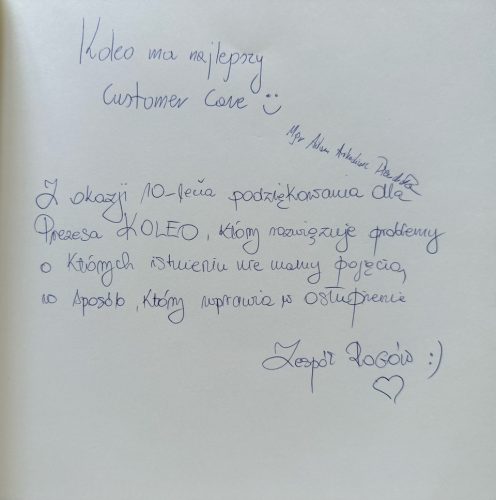 Koleo ma najlepszy
Customer Care :)
Mgr Adam Arkadiusz
Z okazji 10-lecia podziękowania dla
Prezesa KOLEO, który rozwiązuje problemy
o których istnieniu nie mamy pojęcia,
w sposób, który wprawia w osłupienie
Zespół ROGÓW :)
♡